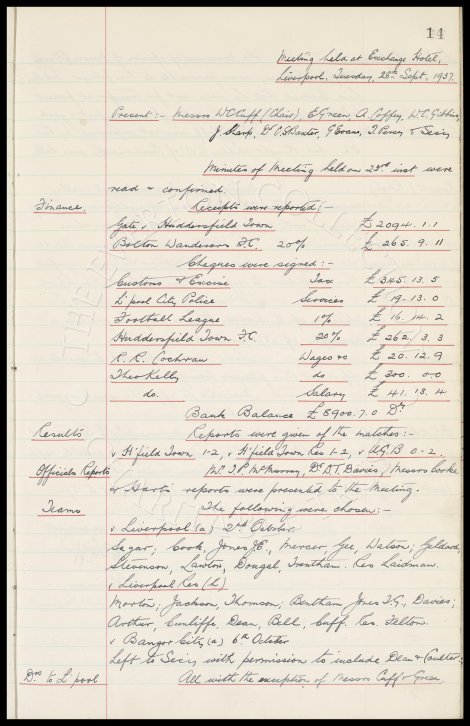 14
Meeting held at Exchange Hotel,
Liverpool, Tuesday, 28th Sept, 1937.
Present:- Messrs W.C. Cuff (Chair), E. Green, A. Coffey, W.C. Gibbins,
J. Sharp, Dr C.S. Baxter, G. Evans, T. Percy & Secy
Minutes of Meeting held on 23rd inst were
read & confirmed
Finance. Receipts were reported:-
Gate v Huddersfield Town £ 2094. 1. 1
Bolton Wanderers F.C. 20% £ 265. 9. 11
Cheques were signed:-
Customs & Excise Tax £ 345. 13. 5
L'pool City Police Services £ 19. 13. 0
Football League 1% £ 16. 14. 2
Huddersfield Town F.C. 20% £ 262. 3. 3
R. R. Cochran Wages &c £ 20. 12. 9
Theo Kelly do £ 300. 0. 0
do. Salary £ 41. 13. 4
Bank Balance £8900. 7. 0 Dr
Results Reports were given of the matches:-
v H'field Town 1-2, v H'field Town Res 1-2, v U.G.B 0-2.
Officials Reports Mr J.P. McMurray, Dr D.T. Davies, Messrs Cooke
& Harris reports were presented to the Meeting.
Teams The following were chosen:-
v Liverpool (a) 2nd October
Sagar; Cook, Jones J.E., Mercer Gee, Watson; Geldard,
Stevenson, Lawton, Dougal, Trentham. Res Laidman.
v Liverpool Res (h)
Morton, Jackson, Thomson; Bentham Jones T.G., Davies;
Arthur Cunliffe, Dean, Bell, Cuff. Res. Felton.
v Bangor City (a) 6th October
Left to Secy, with permission to include Dean & Coulter.
Drs to L'pool All with the exception of Messrs Cuff & Green.